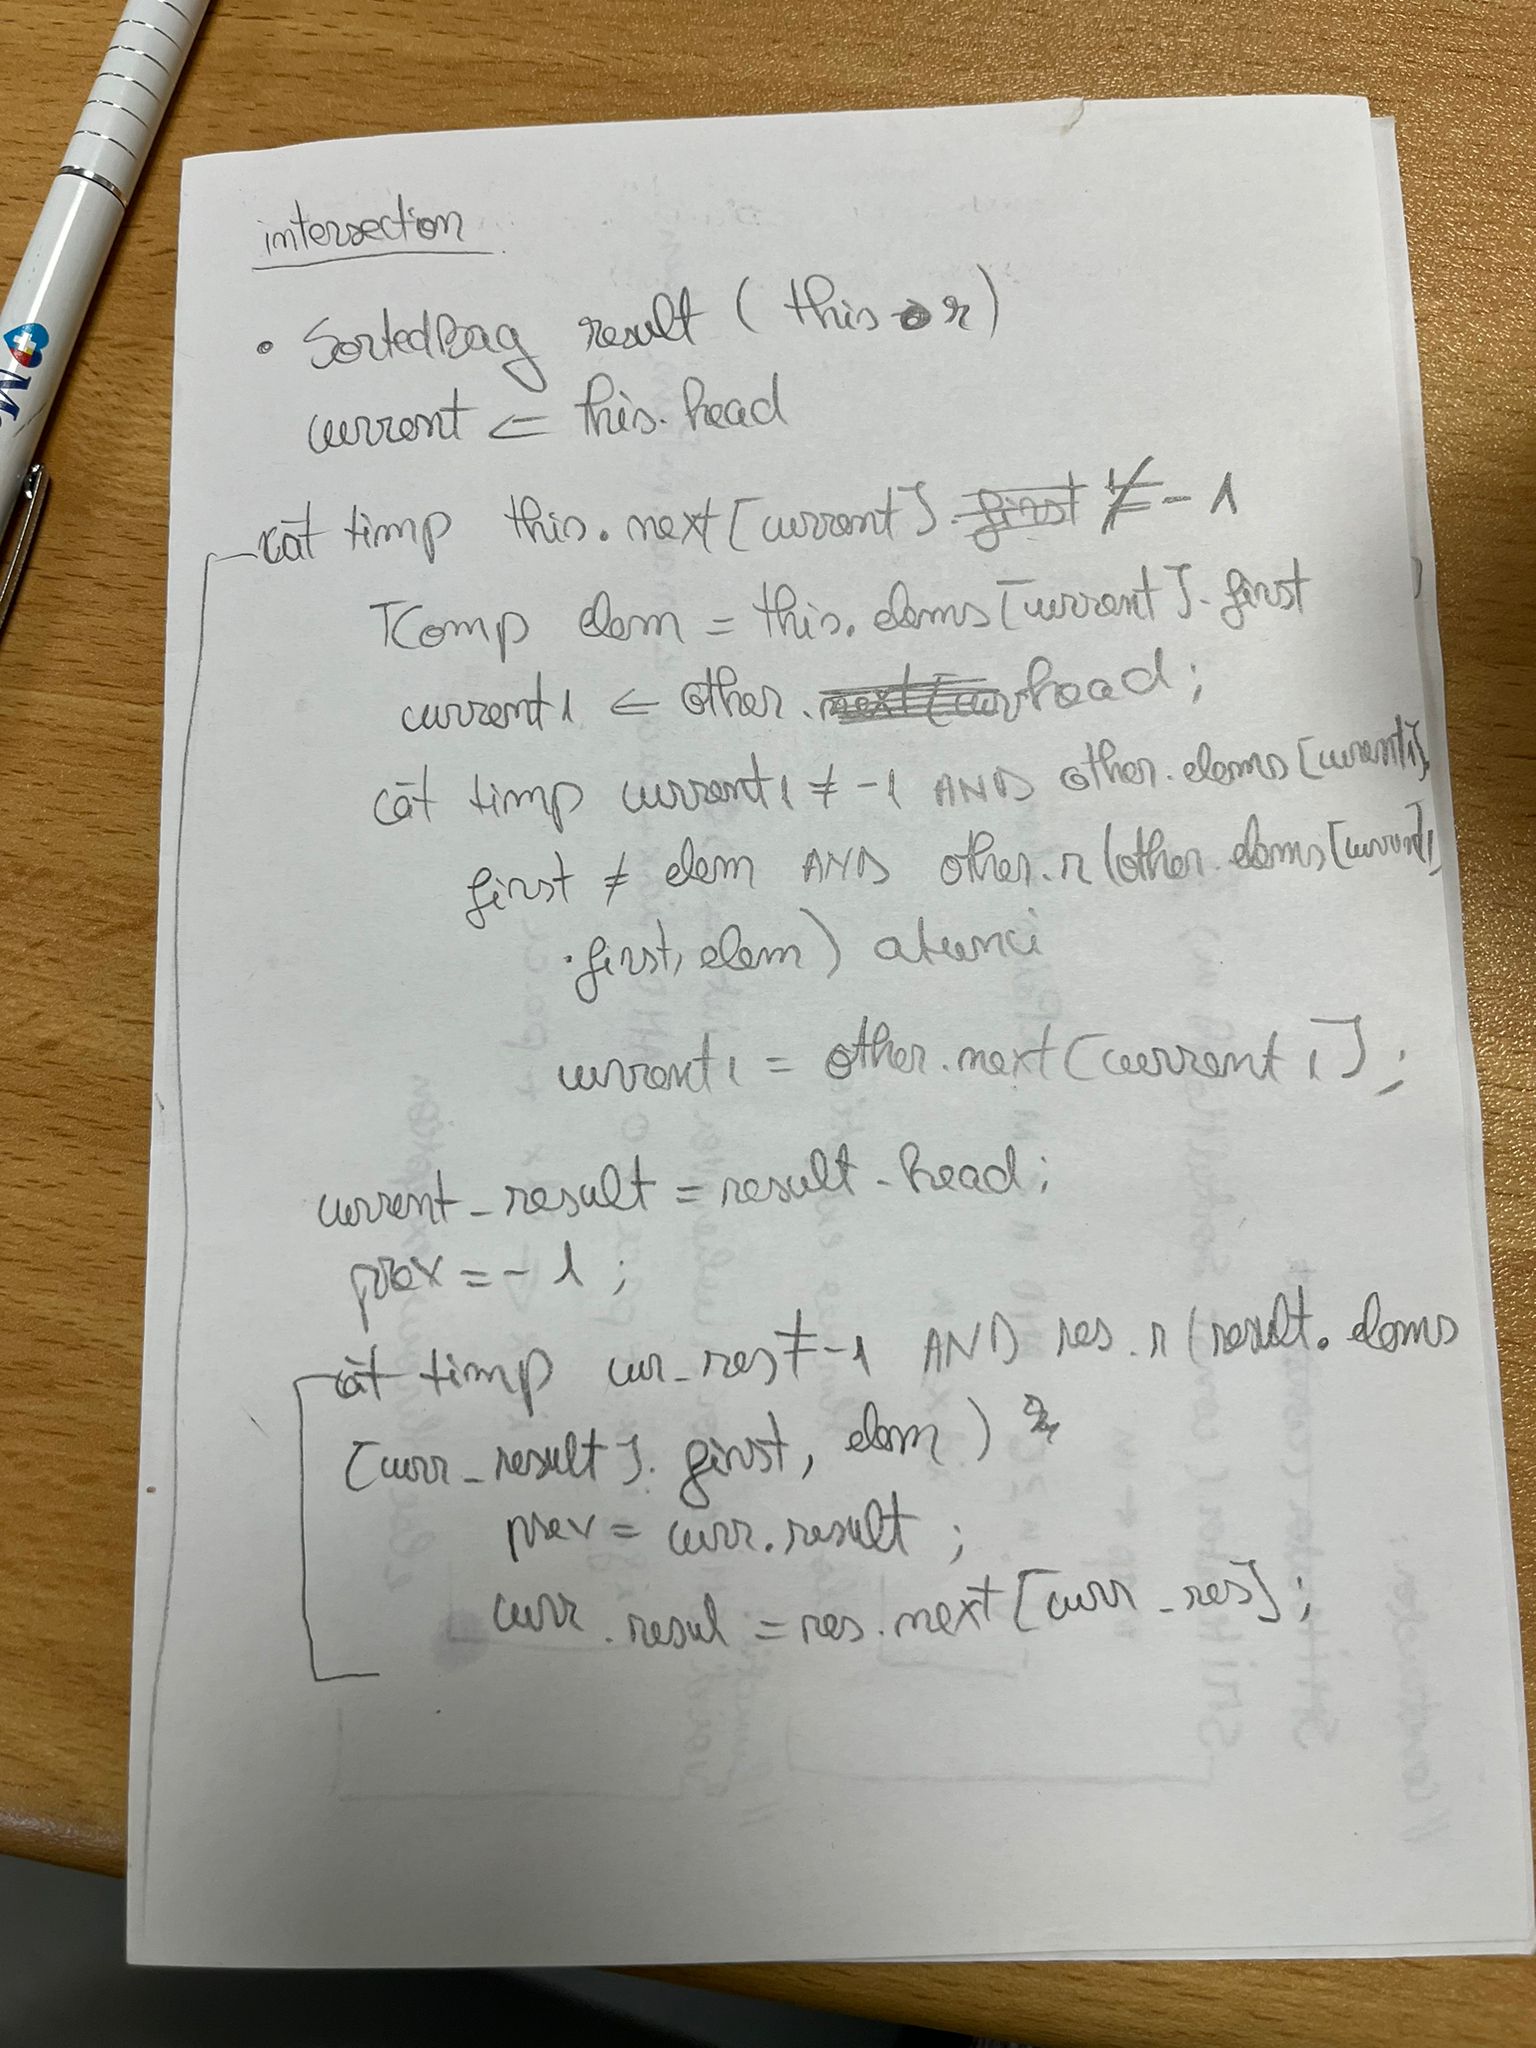 intersection
• SortedBag result (this.r)
current <= this.head
cât timp this.next[current] ≠ -1
TComp elem = this.elems[current].first
current1 <= other.head;
cât timp current1 ≠ -1 AND other.elems[current1].
first ≠ elem AND other.r(other.elems[current1]
.first, elem) atunci
current1 = other.next[current1];
current_result = result.head;
prev = -1;
cât timp cur_res ≠ -1 AND res.r(result.elems
[curr_result].first, elem)
prev = curr.result;
curr.resul = res.next[curr_res];